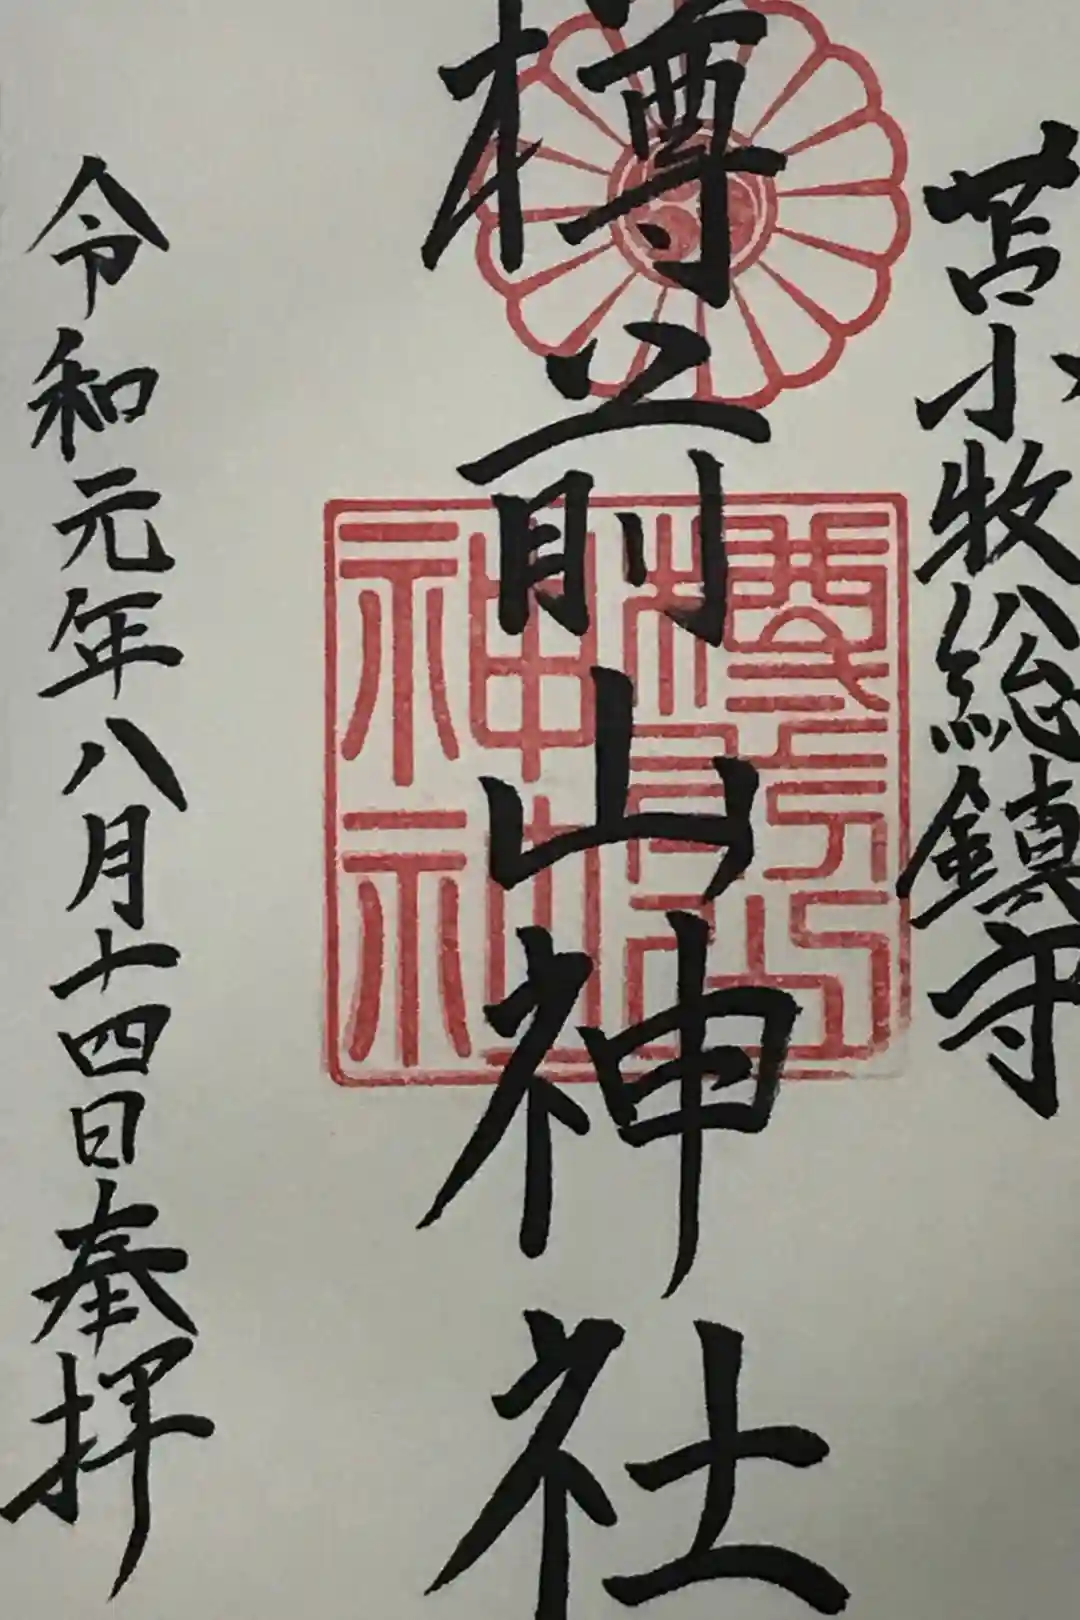 苫小牧総鎮守
樽前山神社
令和元年八月十四日奉拝